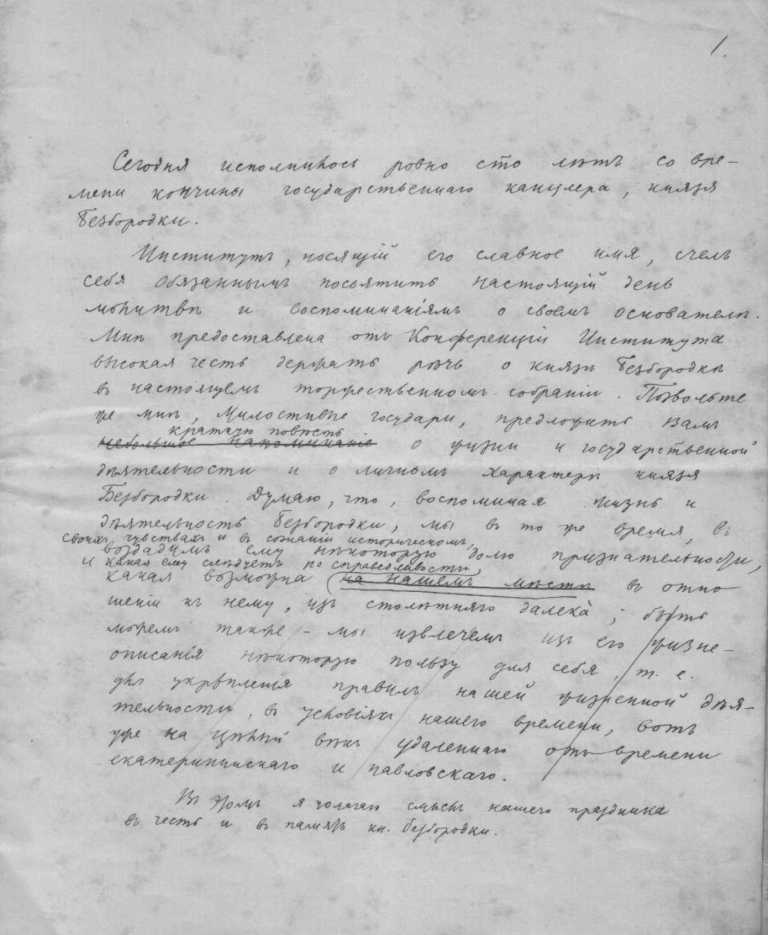 1.
Сегодня исполнилось ровно сто лѣтъ со вре-
мени кончины государственнаго канцлера, князя
Безбородки.
Институтъ, носящій его славное имя, счелъ
себя обязаннымъ посвятить настоящій день
молитвѣ и воспоминаніямъ о своемъ основателѣ.
Мнѣ предоставлена отъ Конференціи Института
высокая честь держать рѣчь о князѣ Безбородкѣ
въ настоящемъ торжественномъ собраніи. Позвольте
же мнѣ, Милостивые государи, предложить Вамъ
краткую повѣсть
небольшое напоминаніе о жизни и государственной
дѣятельности и о личномъ характерѣ князя
Безбородки. Думаю, что, воспоминая жизнь и
дѣятельность Безбородки, мы въ то же время, въ
своихъ чувствахъ и въ сознаніи историческомъ,
воздадимъ ему нѣкоторую долю признательности,
и какая ему слѣдуетъ по справедливости
какая возможна (на нашемъ мѣстѣ въ отно
шеніи къ нему, изъ столѣтняго далека; быть
можемъ также - мы извлечемъ изъ его жизне-
описанія нѣкоторую пользу для себя, т. е.
для укрѣпленія правилъ нашей жизненной дѣя-
тельности, въ условіяхъ нашего времени, вотъ
уже на цѣлый вѣкъ удаленнаго отъ времени
екатерининскаго и павловскаго.
Въ этомъ я полагаю смыслъ нашего праздника
въ честь и въ память кн. Безбородки.